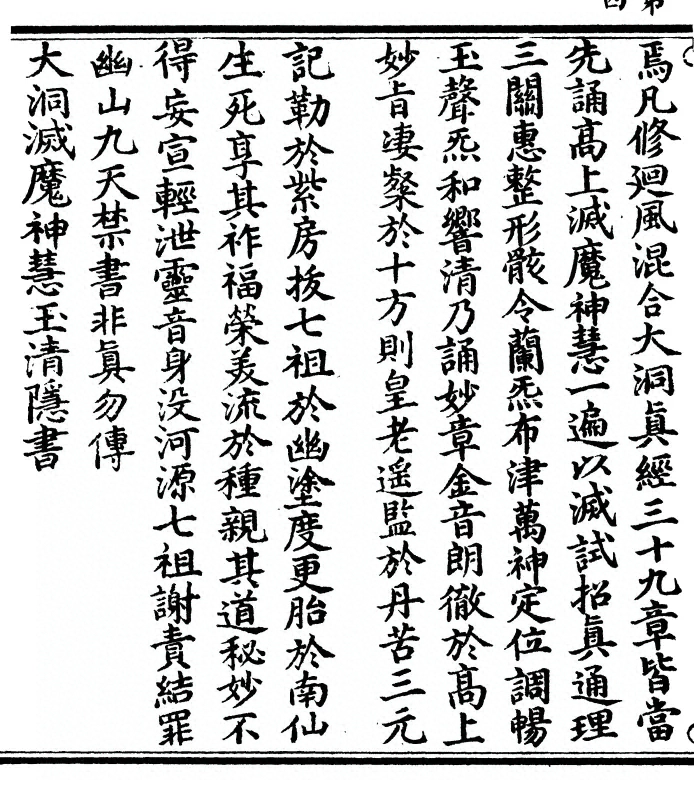 第四
焉凡修廻風混合大洞眞經三十九章皆當
先誦髙上滅魔神慧一遍以滅試招眞通理
三關惠整形骸令蘭炁布津萬神定位調暢
玉聲炁和響清乃誦妙章金音朗徹於髙上
妙旨凄粲於十方則皇老遥監於丹苦三元
記勒於紫房拔七祖於幽塗度更胎於南仙
生死享其祚福榮羙流於種親其道秘妙不
得妄宣輕泄靈音身没河源七祖謝責結罪
幽山九天禁書非眞勿傳
大洞滅魔神慧玉清隱書